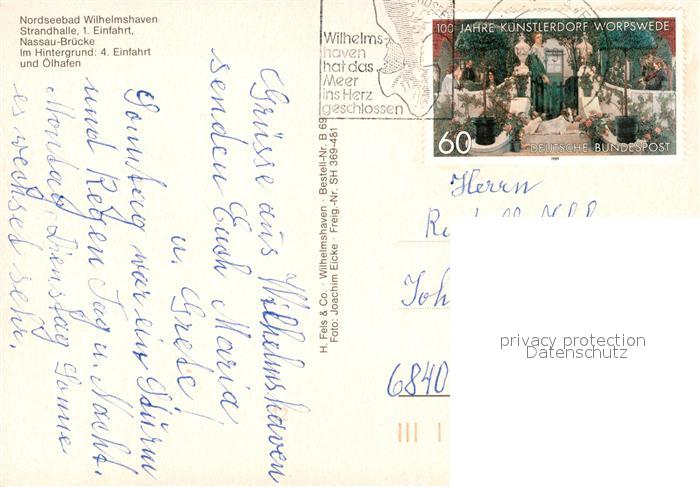 Nordseebad Wilhelmshaven
Strandhalle, 1. Einfahrt,
Nassau-Brücke
Im Hintergrund: 4. Einfahrt
und Ölhafen
Grüsse aus Wilhelmshaven
senden Euch Maria
u. Grete!
Sonntag war ein Sturm
und Regen Tag u. Nacht.
Montag, Dienstag Sonne
es wechselt sehr.
H. Fels & Co. · Wilhelmshaven · Bestell-Nr. B 69
Foto: Joachim Eicke · Freig.-Nr. SH 369-481
Wilhelms-
haven
hat das
Meer
ins Herz
geschlossen
100 JAHRE KÜNSTLERDORF WORPSWEDE
60
DEUTSCHE BUNDESPOST
1989
Herrn
6840
privacy protection
Datenschutz